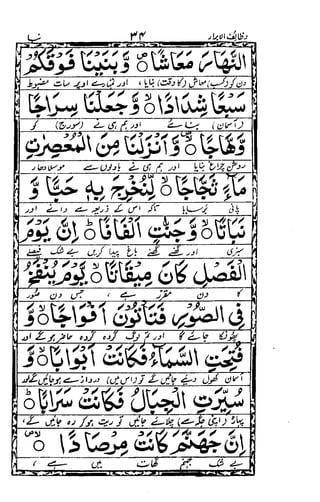 وظائف الابرار ۳۴ نبا
النَّهَارَ مَعَاشًا ۝ وَّبَنَيْنَا فَوْقَكُمْ
دن کو (کسب) معاش (کا وقت) بنایا، اور تمہارے اوپر سات مضبوط
سَبْعًا شِدَادًا ۝ وَّجَعَلْنَا سِرَاجًا
(آسمان) بنائے اور ہم ہی نے (سورج) کو
وَّهَّاجًا ۝ وَّاَنْزَلْنَا مِنَ الْمُعْصِرٰتِ
روشن چراغ بنایا اور ہم ہی نے بادلوں سے موسلادھار
مَآءً ثَجَّاجًا ۝ لِّنُخْرِجَ بِهٖ حَبًّا وَّ
پانی برسایا تاکہ اس کے ذریعہ سے دانے اور
نَبَاتًا ۝ وَّجَنّٰتٍ اَلْفَافًا ۝ اِنَّ يَوْمَ
سبزی اور گھنے گھنے باغ پیدا کریں بے شک فیصلے
الْفَصْلِ كَانَ مِيْقَاتًا ۝ يَّوْمَ يُنْفَخُ
کا دن مقرر ہے، جس دن صور
فِي الصُّوْرِ فَتَاْتُوْنَ اَفْوَاجًا ۝
پھونکا جائے گا اور تم لوگ گروہ گروہ حاضر ہوگے اور
وَّفُتِحَتِ السَّمَآءُ فَكَانَتْ اَبْوَابًا ۝ وَّ
آسمان کھول دیئے جائیں گے تو (اس میں) دروازے ہو جائیں گے اور
سُيِّرَتِ الْجِبَالُ فَكَانَتْ سَرَابًا ۝
پہاڑ (اپنی جگہ سے) چلائے جائیں گے تو ریت ہو کر رہ جائیں گے،
اِنَّ جَهَنَّمَ كَانَتْ مِرْصَادًا ۝
بے شک جہنم گھات میں ہے،